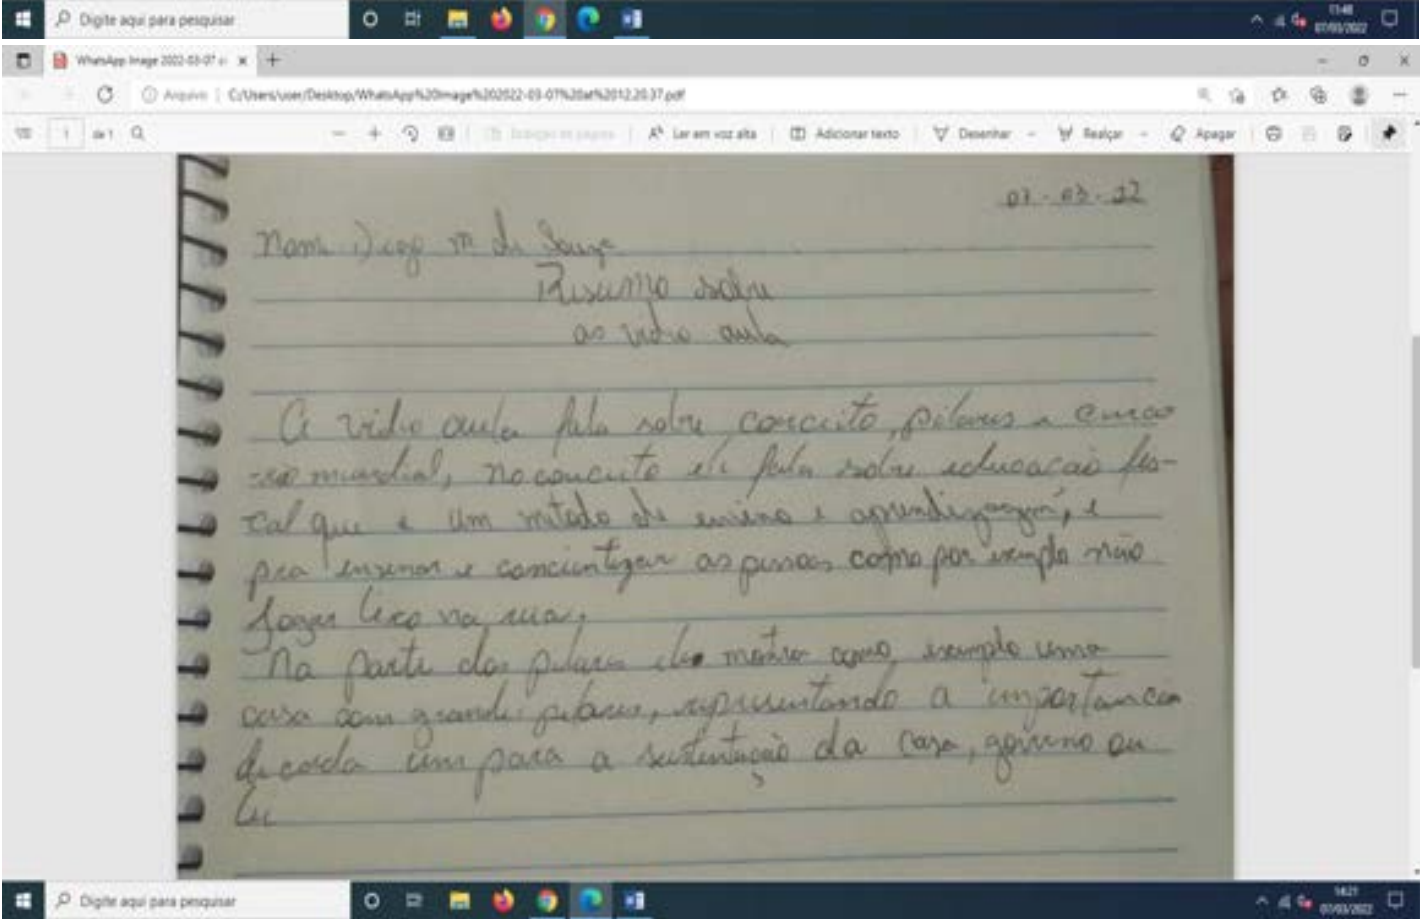 Digite aqui para pesquisar
11:48
07/03/2022
WhatsApp Image 2022-03-07 at
Arquivo C:/Users/user/Desktop/WhatsApp%20Image%202022-03-07%20at%2012.20.37.pdf
1 de 1 Ler em voz alta Adicionar texto Desenhar Realçar Apagar
07-03-22
Nom m de Souza
Resumo sobre
as vidio aula
A vidio aula fala sobre conceito, pilares e
mundial, no conceito ele fala sobre educação fis-
cal que e um metodo de ensino e aprendizagem, e
pra ensinar e concientizar as pessoas como por exemplo não
jogar lixo na rua.
Na parte dos pilares mostra como exemplo uma
casa com grande pilares, representando a importancia
de cada um para a sustentação da casa, governo ou
Lei
Digite aqui para pesquisar
14:21
07/03/2022